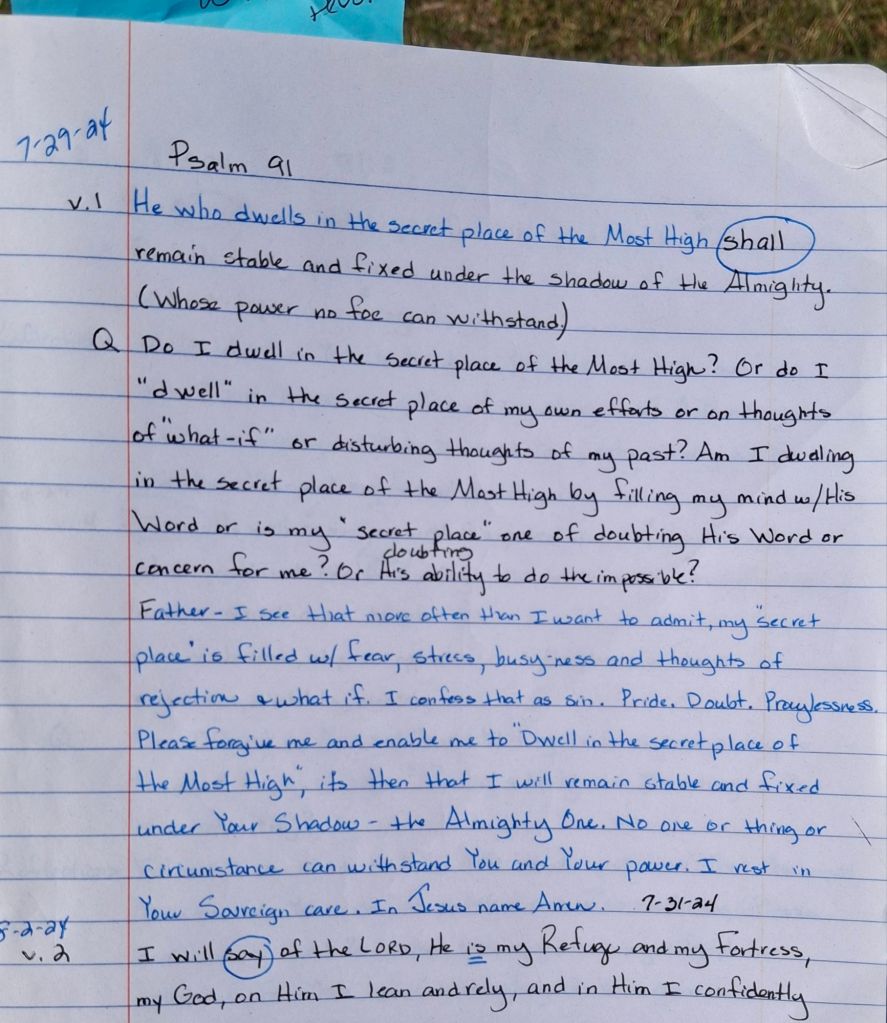 7-29-24
Psalm 91
v.1 He who dwells in the secret place of the Most High shall
remain stable and fixed under the shadow of the Almighty.
(Whose power no foe can withstand)
Q Do I dwell in the secret place of the Most High? Or do I
"dwell" in the secret place of my own efforts or on thoughts
of "what-if" or disturbing thoughts of my past? Am I dwelling
in the secret place of the Most High by filling my mind w/His
Word or is my "secret place" one of doubting His Word or
doubting
concern for me? Or His ability to do the impossible?
Father - I see that more often than I want to admit, my "secret
place" is filled w/ fear, stress, busy-ness and thoughts of
rejection & what if. I confess that as sin. Pride. Doubt. Praylessness.
Please forgive me and enable me to "Dwell in the secret place of
the Most High", its then that I will remain stable and fixed
under Your Shadow - the Almighty One. No one or thing or
circumstance can withstand You and Your power. I rest in
Your Sovreign care. In Jesus name Amen. 7-31-24
8-2-24
v.2 I will say of the LORD, He is my Refuge and my Fortress,
my God, on Him I lean and rely, and in Him I confidently